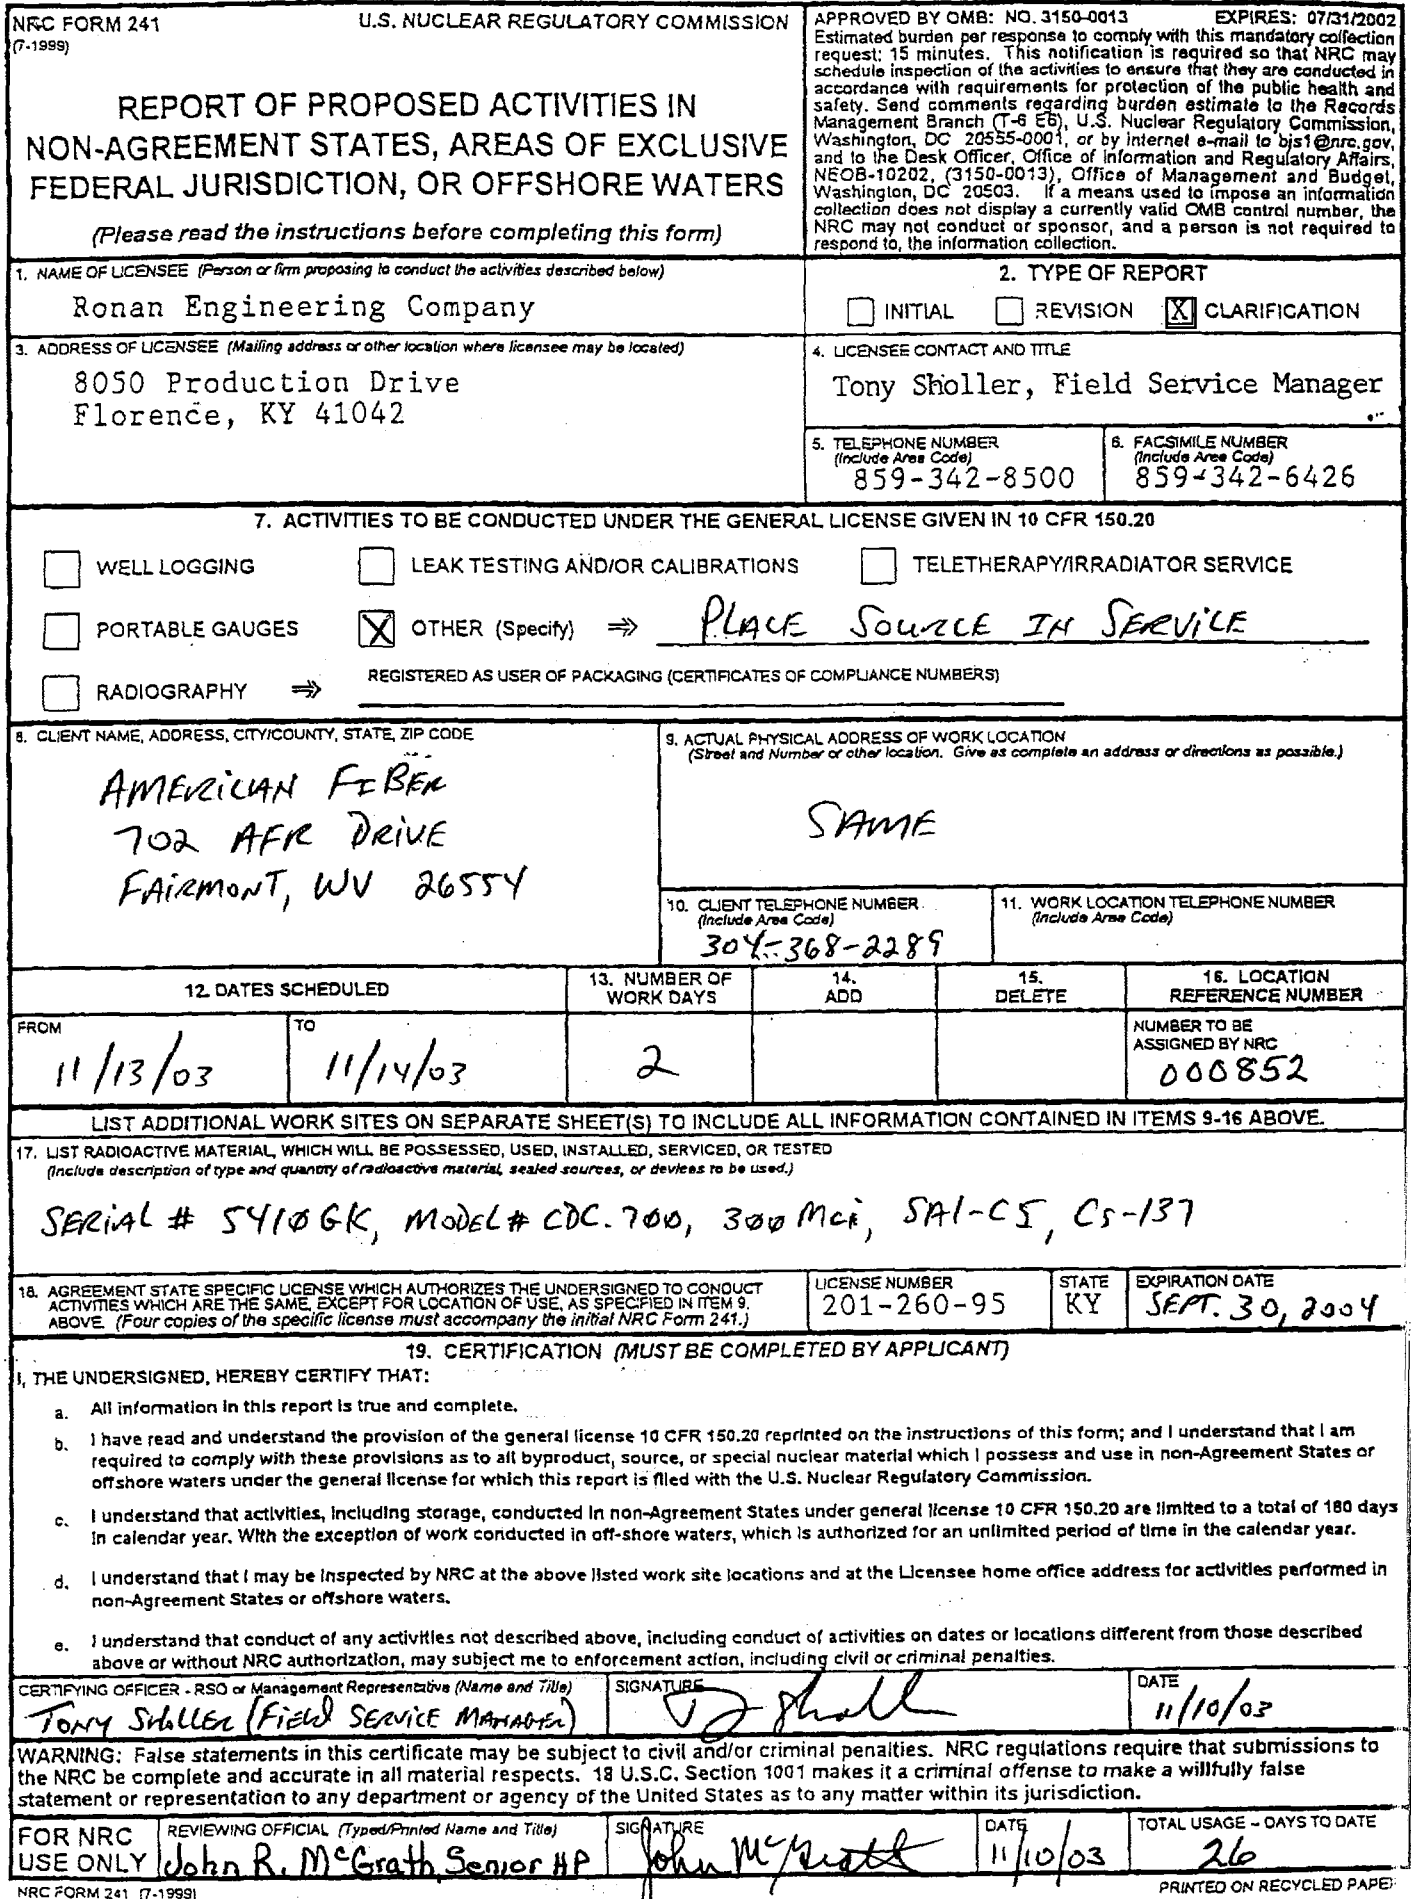 NRC FORM 241
(7-1999)
U.S. NUCLEAR REGULATORY COMMISSION
REPORT OF PROPOSED ACTIVITIES IN
NON-AGREEMENT STATES, AREAS OF EXCLUSIVE
FEDERAL JURISDICTION, OR OFFSHORE WATERS
(Please read the instructions before completing this form)
APPROVED BY OMB: NO. 3150-0013 EXPIRES: 07/31/2002
Estimated burden per response to comply with this mandatory collection
request: 15 minutes. This notification is required so that NRC may
schedule inspection of the activities to ensure that they are conducted in
accordance with requirements for protection of the public health and
safety. Send comments regarding burden estimate to the Records
Management Branch (T-6 E6), U.S. Nuclear Regulatory Commission,
Washington, DC 20555-0001, or by internet e-mail to bjs1@nrc.gov,
and to the Desk Officer, Office of Information and Regulatory Affairs,
NEOB-10202, (3150-0013), Office of Management and Budget,
Washington, DC 20503. If a means used to impose an information
collection does not display a currently valid OMB control number, the
NRC may not conduct or sponsor, and a person is not required to
respond to, the information collection.
1. NAME OF LICENSEE (Person or firm proposing to conduct the activities described below)
Ronan Engineering Company
2. TYPE OF REPORT
INITIAL REVISION X CLARIFICATION
3. ADDRESS OF LICENSEE (Mailing address or other location where licensee may be located)
8050 Production Drive
Florence, KY 41042
4. LICENSEE CONTACT AND TITLE
Tony Sholler, Field Service Manager
5. TELEPHONE NUMBER
(Include Area Code)
859-342-8500
6. FACSIMILE NUMBER
(Include Area Code)
859-342-6426
7. ACTIVITIES TO BE CONDUCTED UNDER THE GENERAL LICENSE GIVEN IN 10 CFR 150.20
WELL LOGGING LEAK TESTING AND/OR CALIBRATIONS TELETHERAPY/IRRADIATOR SERVICE
PORTABLE GAUGES X OTHER (Specify) ⇒ PLACE SOURCE IN SERVICE
RADIOGRAPHY ⇒ REGISTERED AS USER OF PACKAGING (CERTIFICATES OF COMPLIANCE NUMBERS)
8. CLIENT NAME, ADDRESS, CITY/COUNTY, STATE, ZIP CODE
AMERICAN FIBER
702 AFR DRIVE
FAIRMONT, WV 26554
9. ACTUAL PHYSICAL ADDRESS OF WORK LOCATION
(Street and Number or other location. Give as complete an address or directions as possible.)
SAME
10. CLIENT TELEPHONE NUMBER
(Include Area Code)
304-368-2289
11. WORK LOCATION TELEPHONE NUMBER
(Include Area Code)
12. DATES SCHEDULED
13. NUMBER OF
WORK DAYS
14.
ADD
15.
DELETE
16. LOCATION
REFERENCE NUMBER
FROM
11/13/03
TO
11/14/03
2
NUMBER TO BE
ASSIGNED BY NRC
000852
LIST ADDITIONAL WORK SITES ON SEPARATE SHEET(S) TO INCLUDE ALL INFORMATION CONTAINED IN ITEMS 9-16 ABOVE.
17. LIST RADIOACTIVE MATERIAL, WHICH WILL BE POSSESSED, USED, INSTALLED, SERVICED, OR TESTED
(Include description of type and quantity of radioactive material, sealed sources, or devices to be used.)
SERIAL # 5410GK, MODEL# CDC.700, 300 Mci, SA1-C5, Cs-137
18. AGREEMENT STATE SPECIFIC LICENSE WHICH AUTHORIZES THE UNDERSIGNED TO CONDUCT
ACTIVITIES WHICH ARE THE SAME, EXCEPT FOR LOCATION OF USE, AS SPECIFIED IN ITEM 9.
ABOVE. (Four copies of the specific license must accompany the initial NRC Form 241.)
LICENSE NUMBER
201-260-95
STATE
KY
EXPIRATION DATE
SEPT. 30, 2004
19. CERTIFICATION (MUST BE COMPLETED BY APPLICANT)
I, THE UNDERSIGNED, HEREBY CERTIFY THAT:
a. All information in this report is true and complete.
b. I have read and understand the provision of the general license 10 CFR 150.20 reprinted on the instructions of this form; and I understand that I am
required to comply with these provisions as to all byproduct, source, or special nuclear material which I possess and use in non-Agreement States or
offshore waters under the general license for which this report is filed with the U.S. Nuclear Regulatory Commission.
c. I understand that activities, including storage, conducted in non-Agreement States under general license 10 CFR 150.20 are limited to a total of 180 days
in calendar year. With the exception of work conducted in off-shore waters, which is authorized for an unlimited period of time in the calendar year.
d. I understand that I may be inspected by NRC at the above listed work site locations and at the Licensee home office address for activities performed in
non-Agreement States or offshore waters.
e. I understand that conduct of any activities not described above, including conduct of activities on dates or locations different from those described
above or without NRC authorization, may subject me to enforcement action, including civil or criminal penalties.
CERTIFYING OFFICER - RSO or Management Representative (Name and Title)
TONY SHOLLER (FIELD SERVICE MANAGER)
SIGNATURE
T Sholl
DATE
11/10/03
WARNING: False statements in this certificate may be subject to civil and/or criminal penalties. NRC regulations require that submissions to
the NRC be complete and accurate in all material respects. 18 U.S.C. Section 1001 makes it a criminal offense to make a willfully false
statement or representation to any department or agency of the United States as to any matter within its jurisdiction.
FOR NRC
USE ONLY
REVIEWING OFFICIAL (Typed/Printed Name and Title)
John R. McGrath, Senior HP
SIGNATURE
John McGrath
DATE
11/10/03
TOTAL USAGE - DAYS TO DATE
26
NRC FORM 241 (7-1999)
PRINTED ON RECYCLED PAPE